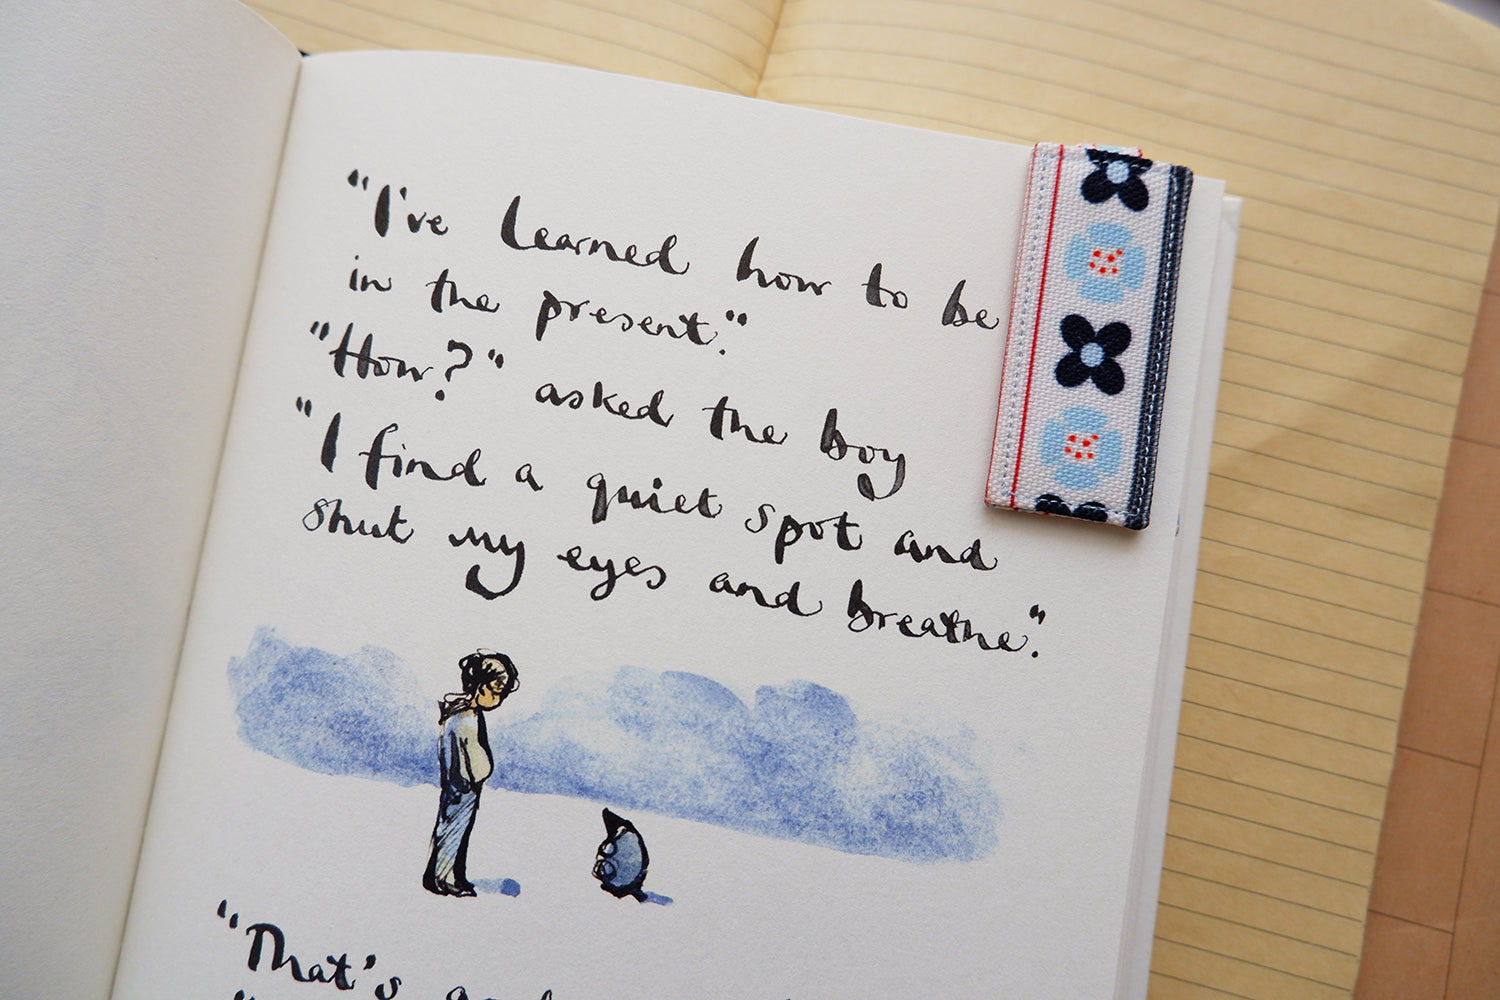 "I've learned how to be
in the present."
"How?" asked the boy
"I find a quiet spot and
shut my eyes and breathe."
"That's